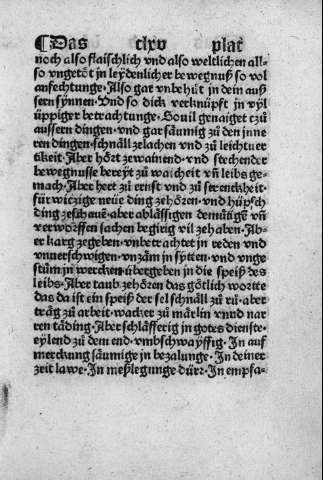 ¶Das clxv plat
noch also flaischlich vnd also weltlichen all-
so vngetöt in leydenlicher bewegnuß so vol
anfechtunge· Also gar vnbehüt in dein auß
sern synnen· Vnd so dick verknüpft in vyl
üppiger betrachtunge· Souil genaiget czů
aussern dingen· vnd gar säumig zů den jnne
ren dingen· schnäll zelachen vnd zů leichtuer
tikeit· Aber hört zewainend· vnd stechender
bewegnusse bereyt zů waicheit vñ leibs ge-
mach· Aber hert zů ernst vnd zů strenckheit·
fürwiczige neüe ding zehören· vnd hüpsch
ding zeschauē· aber ablässigen demütigē vñ
verworffen sachen begirig vil zehaben· Ab-
er karg zegeben· vnbetrachtet in reden vnd
vnuerschwigen· vnzäm in sytten· vnd vnge
stům in wercken· übergeben in die speiß des
leibs· Aber taub zehören das götlich wortte
das da ist ein speiß der sel schnäll zů rů· aber
träg zů arbeit· wacker zů märlin vnnd nar
ren täding· Aber schläfferig in gotes dienste·
eylend zů dem end· vmbschwayffig· In auf
merckung säumige jn bezalunge· In deiner
zeit lawe· In meßlegunge dürr· In empfa-